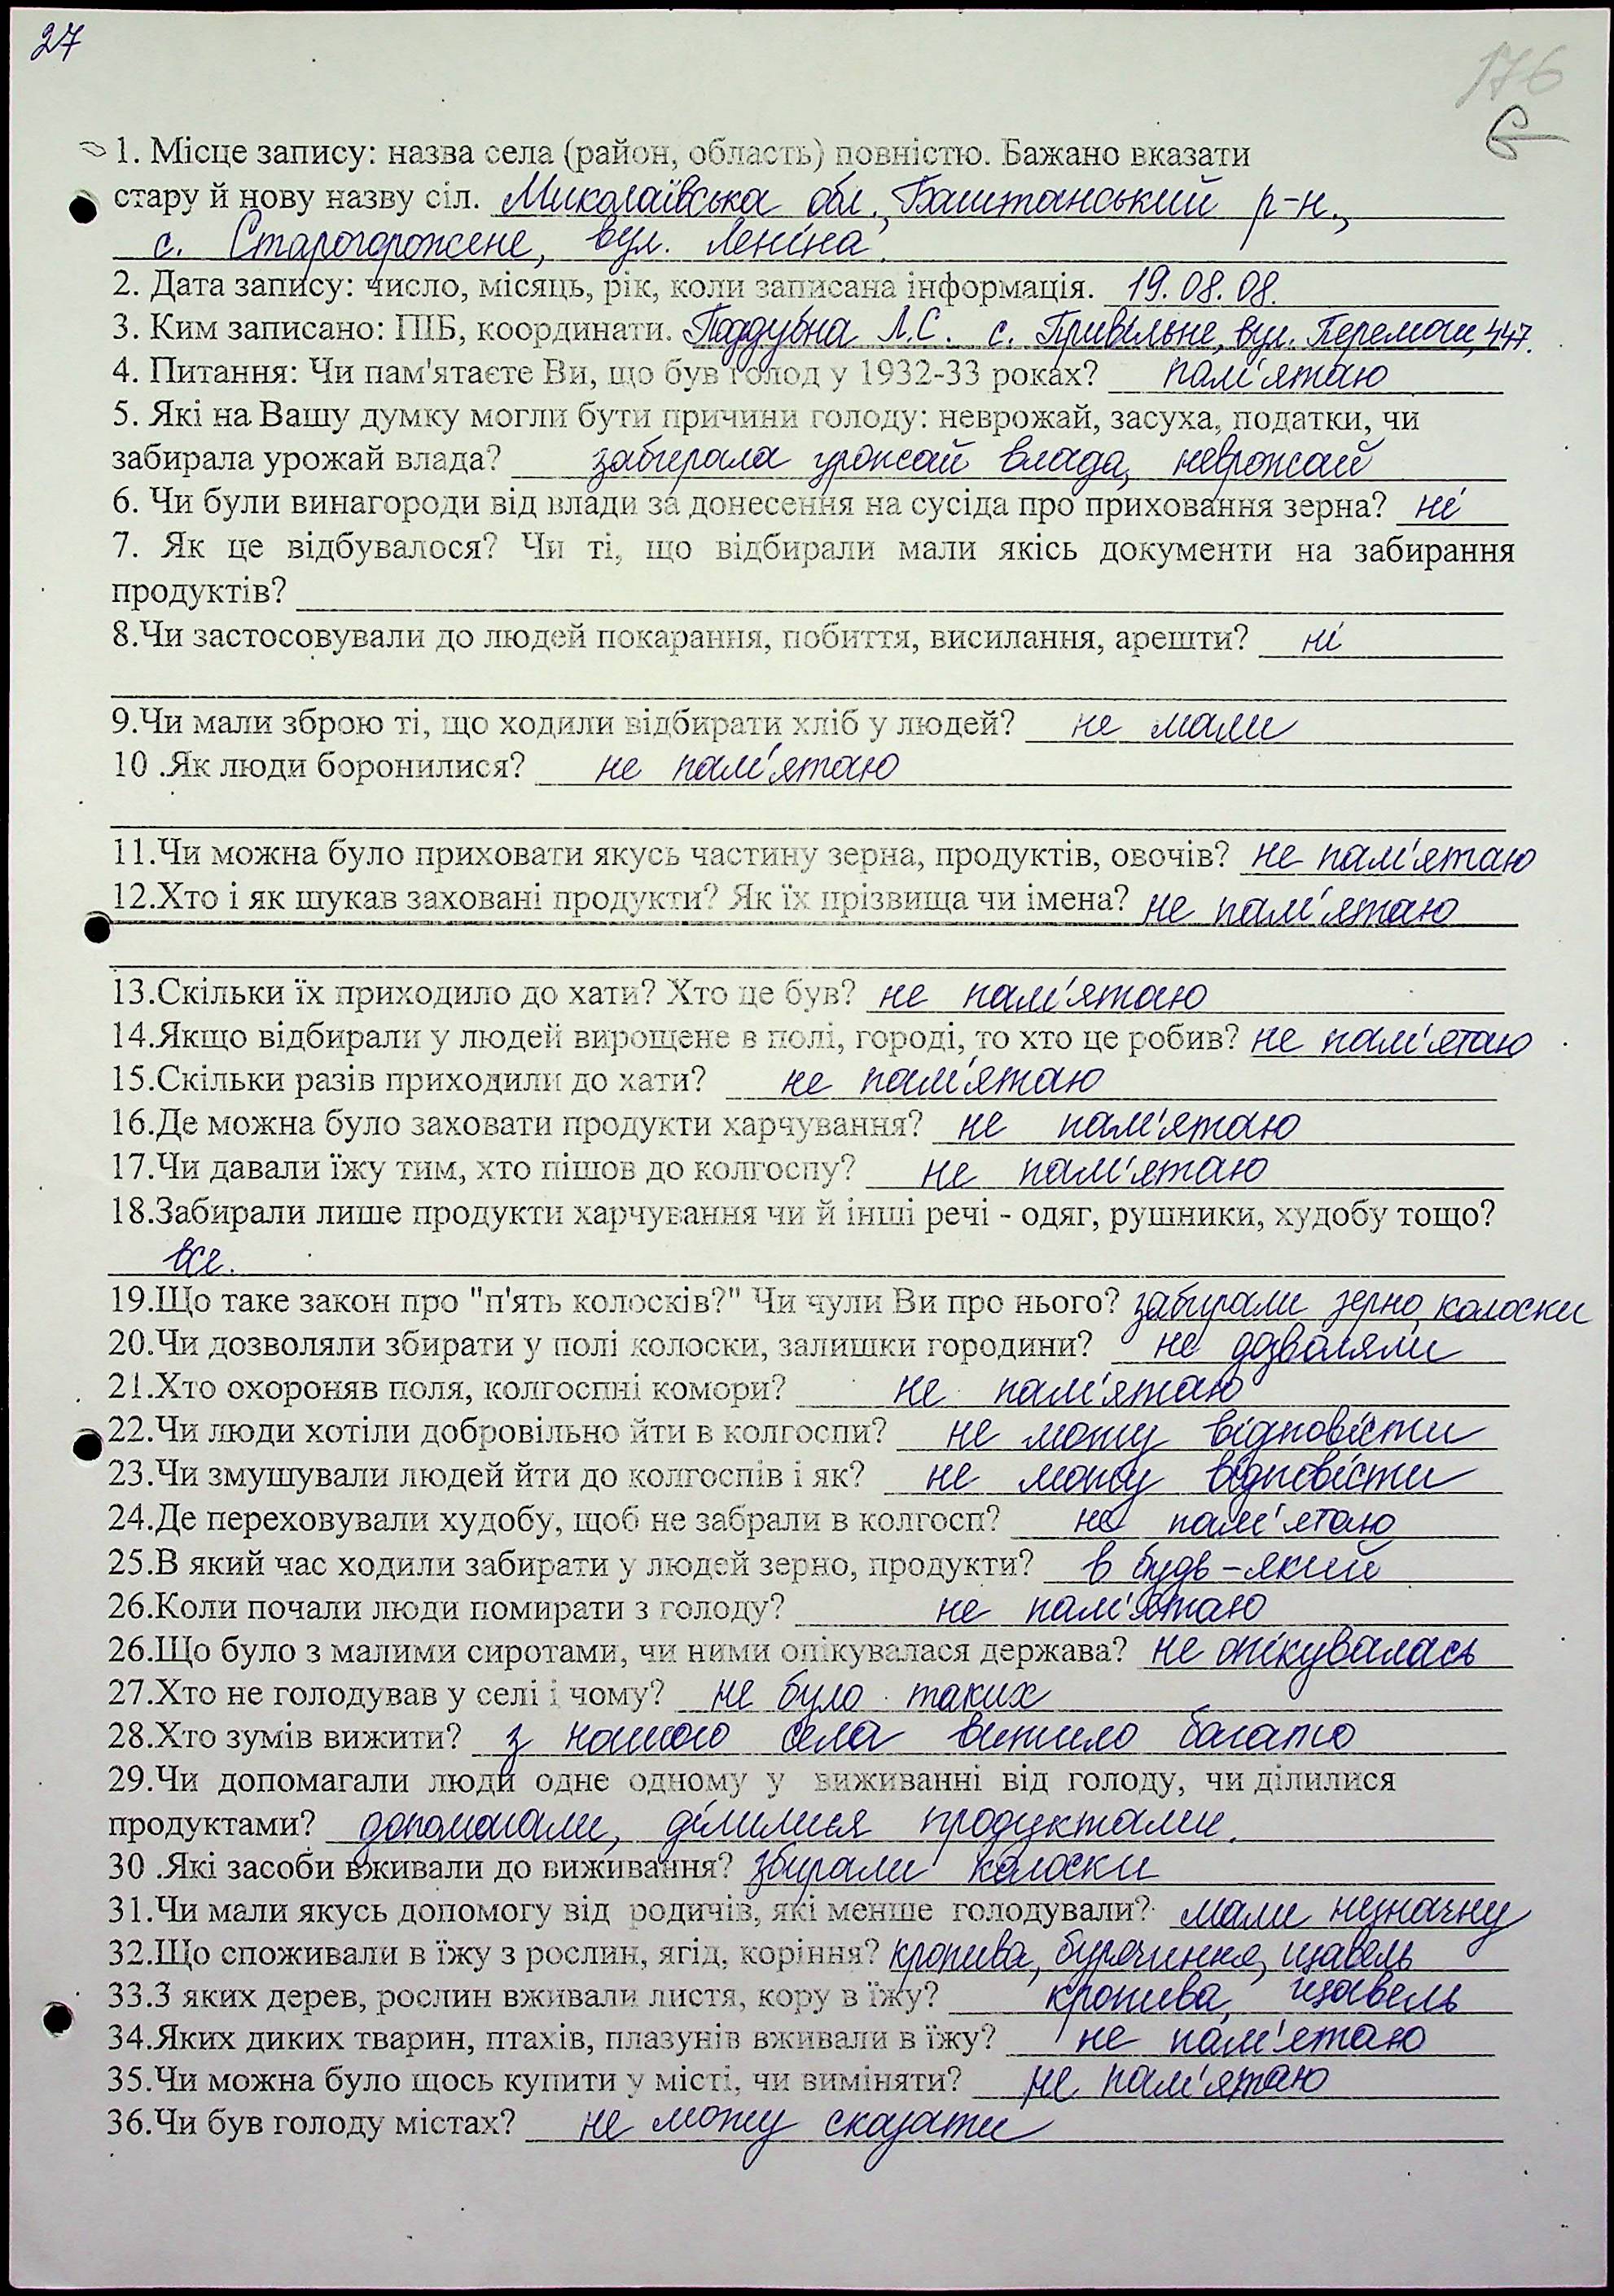 27
176
1. Місце запису: назва села (район, область) повністю. Бажано вказати
стару й нову назву сіл. Миколаївська обл., Баштанський р-н.,
с. Старогорожене, вул. Леніна.
2. Дата запису: число, місяць, рік, коли записана інформація. 19.08.08.
3. Ким записано: ПІБ, координати. Піддубна Л.С. с. Привільне, вул. Перемоги, 447.
4. Питання: Чи пам'ятаєте Ви, що був голод у 1932-33 роках? пам'ятаю
5. Які на Вашу думку могли бути причини голоду: неврожай, засуха, податки, чи
забирала урожай влада? забирала урожай влада, неврожай
6. Чи були винагороди від влади за донесення на сусіда про приховання зерна? ні
7. Як це відбувалося? Чи ті, що відбирали мали якісь документи на забирання
продуктів?
8.Чи застосовували до людей покарання, побиття, висилання, арешти? ні
9.Чи мали зброю ті, що ходили відбирати хліб у людей? не мали
10 .Як люди боронилися? не пам'ятаю
11.Чи можна було приховати якусь частину зерна, продуктів, овочів? не пам'ятаю
12.Хто і як шукав заховані продукти? Як їх прізвища чи імена? не пам'ятаю
13.Скільки їх приходило до хати? Хто це був? не пам'ятаю
14.Якщо відбирали у людей вирощене в полі, городі, то хто це робив? не пам'ятаю
15.Скільки разів приходили до хати? не пам'ятаю
16.Де можна було заховати продукти харчування? не пам'ятаю
17.Чи давали їжу тим, хто пішов до колгоспу? не пам'ятаю
18.Забирали лише продукти харчування чи й інші речі - одяг, рушники, худобу тощо?
все.
19.Що таке закон про "п'ять колосків?" Чи чули Ви про нього? забирали зерно, колоски
20.Чи дозволяли збирати у полі колоски, залишки городини? не дозволяли
21.Хто охороняв поля, колгоспні комори? не пам'ятаю
22.Чи люди хотіли добровільно йти в колгоспи? не можу відповісти
23.Чи змушували людей йти до колгоспів і як? не можу відповісти
24.Де переховували худобу, щоб не забрали в колгосп? не пам'ятаю
25.В який час ходили забирати у людей зерно, продукти? в будь-який
26.Коли почали люди помирати з голоду? не пам'ятаю
26.Що було з малими сиротами, чи ними опікувалася держава? не опікувалась
27.Хто не голодував у селі і чому? не було таких
28.Хто зумів вижити? з нашого села вижило багато
29.Чи допомагали люди одне одному у виживанні від голоду, чи ділилися
продуктами? допомагали, ділилися продуктами.
30 .Які засоби вживали до виживання? збирали колоски
31.Чи мали якусь допомогу від родичів, які менше голодували? мали незначну
32.Що споживали в їжу з рослин, ягід, коріння? кропива, бурячиння, щавель
33.З яких дерев, рослин вживали листя, кору в їжу? кропива, щавель
34.Яких диких тварин, птахів, плазунів вживали в їжу? не пам'ятаю
35.Чи можна було щось купити у місті, чи виміняти? не пам'ятаю
36.Чи був голоду містах? не можу сказати